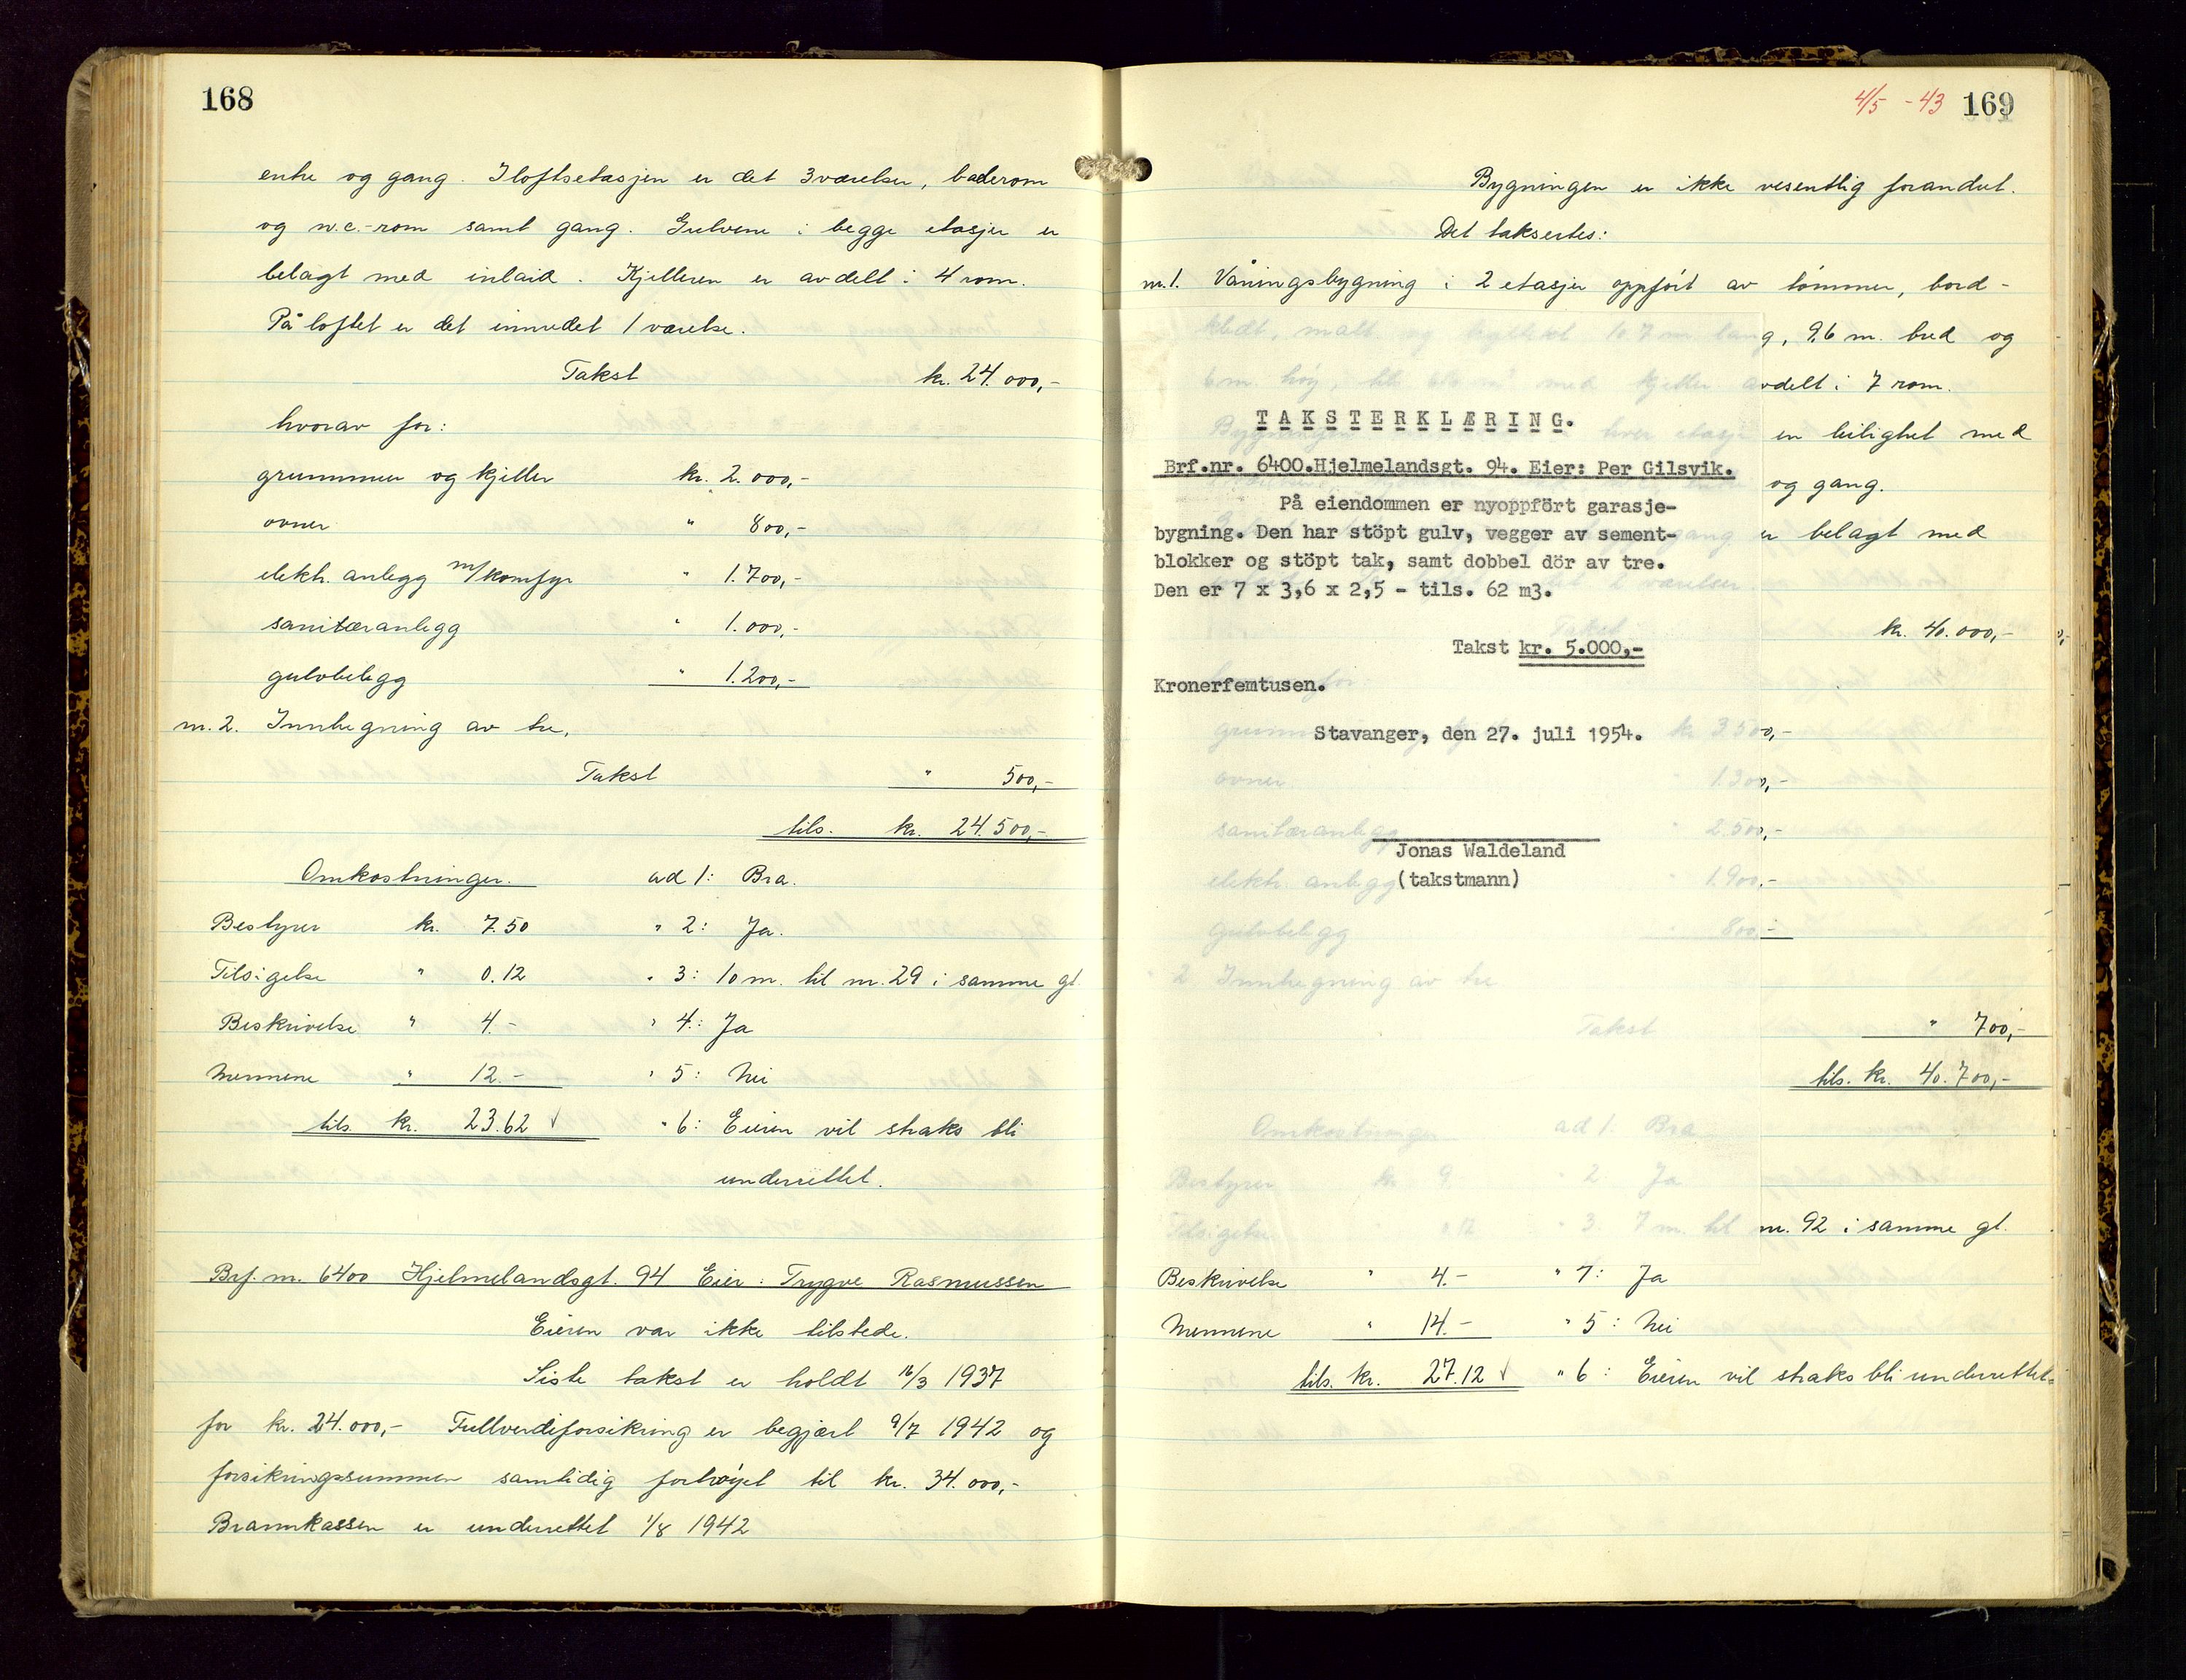 168
entre og gang. I loftsetasjen er det 3 værelser, baderom
og w.c.-rom samt gang. Gulvene i begge etasjer er
belagt med inlaid. Kjelleren er avdelt i 4 rom.
På loftet er det innredet 1 værelse.
Takst kr. 24.000,-
hvorav for:
grunnmur og kjeller kr. 2.000,-
ovner " 800,-
elektr. anlegg m/komfyr " 1.700,-
sanitæranlegg " 1.000,-
gulvbelegg " 1.200,-
nr. 2. Innhegning av tre.
Takst " 500,-
tils. kr. 24.500,-
Omkostninger. ad 1: Bra.
Bestyrer kr. 7.50 " 2: Ja.
Tilsigelse " 0.12 " 3: 10 m. til nr. 29 i samme gt.
Beskrivelse " 4.- " 4: Ja
Mennene " 12.- " 5: Nei
tils. kr. 23.62 " 6: Eieren vil straks bli
underrettet.
Brf. nr. 6400 Hjelmelandsgt. 94 Eier: Trygve Rasmussen
Eieren var ikke tilstede.
Siste takst er holdt 16/3 1937
for kr. 24.000,- Fullverdiforsikring er begjært 9/7 1942 og
forsikringssummen samtidig forhøyet til kr. 34.000,-
Brannkassen er underrettet 1/8 1942
4/5 - 43 169
Bygningen er ikke vesentlig forandret.
Det taksertes:
nr. 1. Våningsbygning i 2 etasjer oppført av tømmer, bord-
kledt, malt og tegltekt 10.7 m lang, 9.6 m. bred og
6 m. høy, tils. med kjeller avdelt i 7 rom.
TAKSTERKLÆRING.
Bygningen hver etasje en leilighet med
Brf.nr. 6400.Hjelmelandsgt. 94. Eier: Per Gilsvik.
og gang.
På eiendommen er nyoppfört garasje-
bygning. Den har stöpt gulv, vegger av sement-
er belagt med
blokker og stöpt tak, samt dobbel dör av tre.
Den er 7 x 3,6 x 2,5 - tils. 62 m3.
2 værelser
kr. 40.000,-
Takst kr. 5.000,-
Kronerfemtusen.
kr. 3.500,-
Stavanger, den 27. juli 1954.
ovner " 1.300,-
sanitæranlegg " 2.500,-
Jonas Waldeland
(takstmann)
elektr. anlegg " 1.900,-
gulvbelegg " 800,-
2. Innhegning av tre
Takst " 700,-
tils. kr. 40.700,-
Omkostninger ad 1. Bra
Bestyrer kr. 9. " 2 Ja
Tilsigelse " .12 " 3. 7 m. til nr. 92 i samme gt.
Beskrivelse " 4.- " 4: Ja
Mennene " 14.- " 5: Nei
tils. kr. 27.12 " 6: Eieren vil straks bli underrettet.